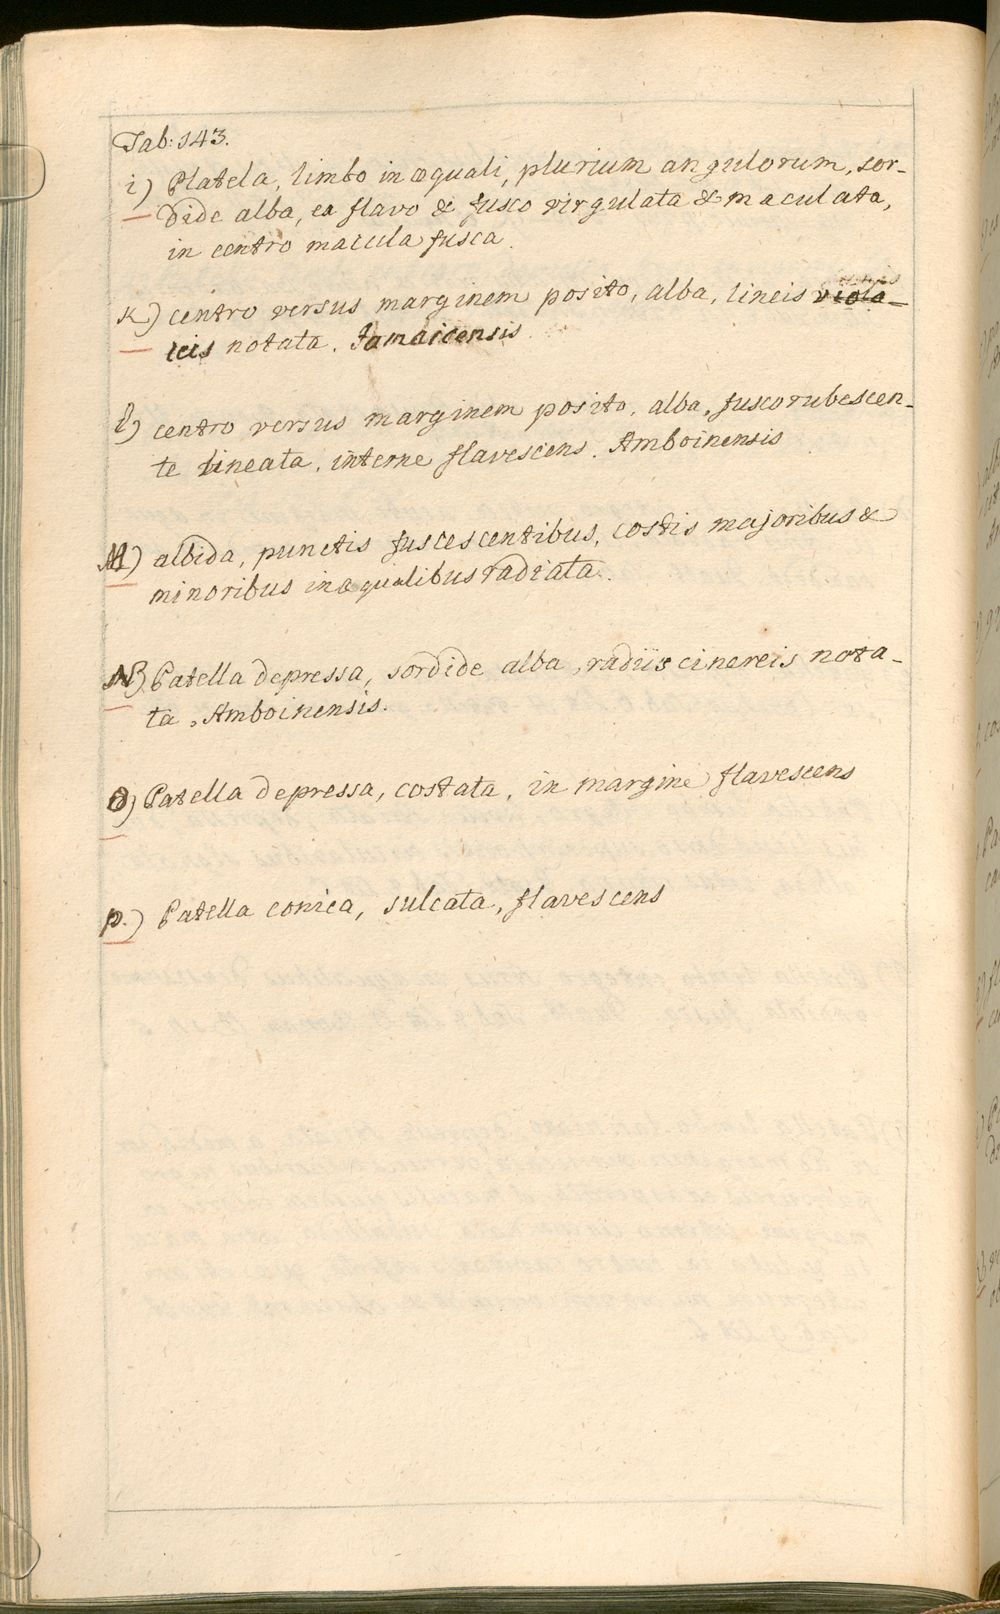 Tab: 143.
i) Platela, limbo inæquali, plurium angulorum, sor-
dide alba, ea flavo & fusco virgulata & maculata,
in centro macula fusca.
K) centro versus marginem posito, alba, lineis viola-
ceis notata. Jamaicensis
l) centro versus marginem posito, alba, fusco rubescen-
te lineata, interne flavescens. Amboinensis
M) albida, punctis fuscescentibus, costis majoribus &
minoribus inæqualibus radiata.
N) Patella depressa, sordide alba, radiis cinereis nota-
ta, Amboinensis.
O) Patella depressa, costata, in margine flavescens
p.) Patella conica, sulcata, flavescens